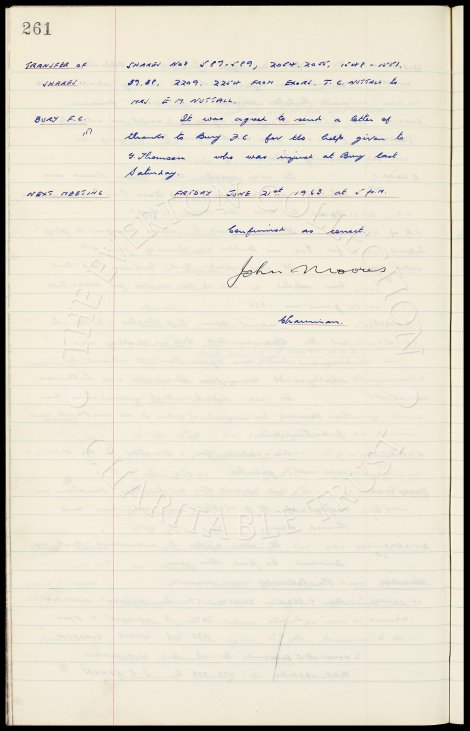 261
TRANSFER OF SHARES NOS 587-589, 2054. 2055, 1548 - 1551.
SHARES 87.88, 2209. 2254 FROM EXORS. T. C. NUTTALL to
MRS. E. M. NUTTALL.
BURY F.C. It was agreed to send a letter of
thanks to Bury F.C. for the help given to
G Thomson who was injured at Bury last
Saturday.
NEXT MEETING FRIDAY JUNE 21st 1963 at 5 p.m.
Confirmed as correct.
John Moores
Chairman.
THE EVERTON COLLECTION
CHARITABLE TRUST